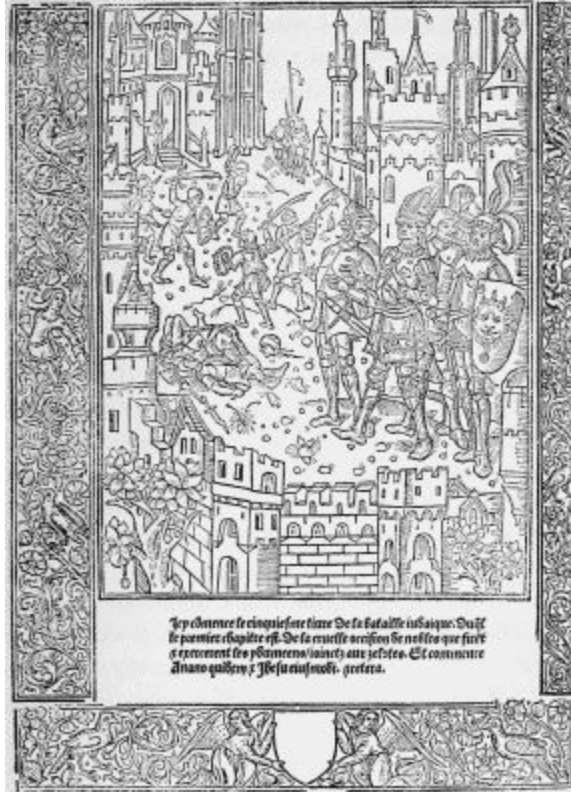 Icy cõmence le cinquiesme liure De la bataille iudaique. Du q̃l
le premier chapitre est. De la cruelle occision de nobles que firẽt
⁊ exercerent les ydumeens/ioinctz aux zelotes. Et commence
Anano quidem ⁊ Jhesu eiusmodi. ⁊cetera.